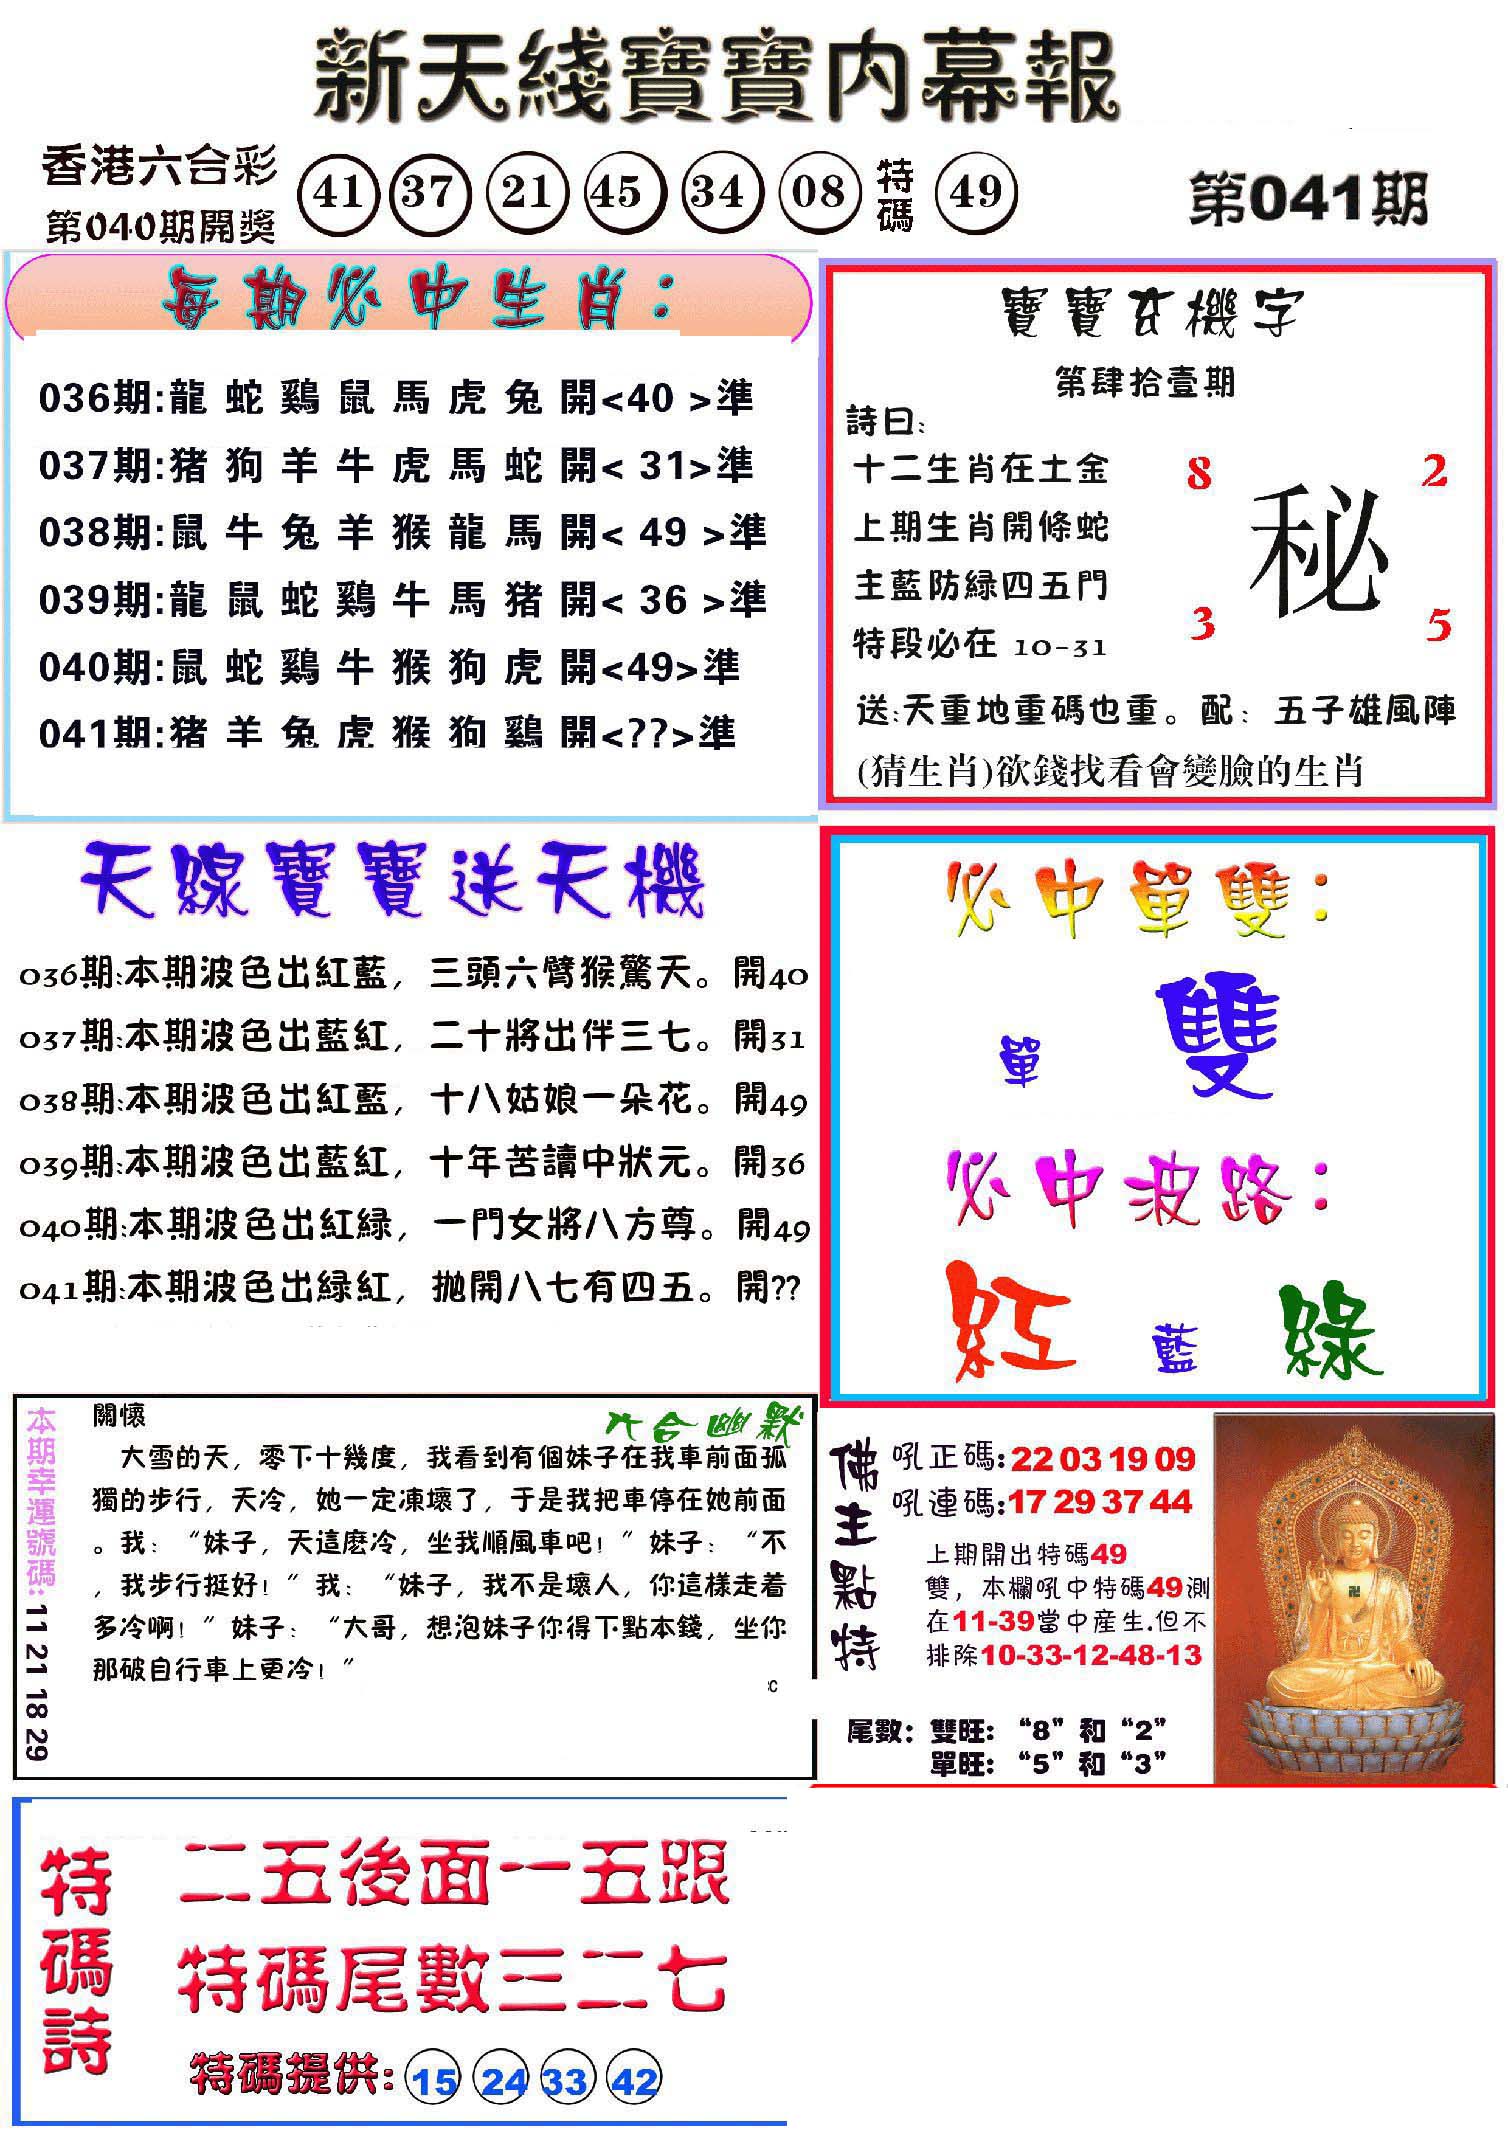 新天綫寶寶内幕報
香港六合彩
第040期開獎
41 37 21 45 34 08 特碼 49
第041期
每期必中生肖：
036期:龍 蛇 鷄 鼠 馬 虎 兔 開<40 >準
037期:猪 狗 羊 牛 虎 馬 蛇 開< 31>準
038期:鼠 牛 兔 羊 猴 龍 馬 開< 49 >準
039期:龍 鼠 蛇 鷄 牛 馬 猪 開< 36 >準
040期:鼠 蛇 鷄 牛 猴 狗 虎 開<49>準
041期:猪 羊 兔 虎 猴 狗 鷄 開<??>準
寶寶玄機字
第肆拾壹期
詩曰:
十二生肖在土金
上期生肖開條蛇
主藍防緑四五門
特段必在 10-31
8 2
秘
3 5
送:天重地重碼也重。配：五子雄風陣
(猜生肖)欲錢找看會變臉的生肖
天線寶寶送天機
036期:本期波色出紅藍，三頭六臂猴驚天。開40
037期:本期波色出藍紅，二十將出伴三七。開31
038期:本期波色出紅藍，十八姑娘一朵花。開49
039期:本期波色出藍紅，十年苦讀中狀元。開36
040期:本期波色出紅緑，一門女將八方尊。開49
041期:本期波色出緑紅，拋開八七有四五。開??
必中單雙：
單 雙
必中波路：
紅 藍 綠
本期幸運號碼:11 21 18 29
六合幽默
關懷
大雪的天，零下十幾度，我看到有個妹子在我車前面孤
獨的步行，天冷，她一定凍壞了，于是我把車停在她前面
。我：“妹子，天這麽冷，坐我順風車吧！”妹子：“不
，我步行挺好！”我：“妹子，我不是壞人，你這樣走着
多冷啊！”妹子：“大哥，想泡妹子你得下點本錢，坐你
那破自行車上更冷！”
佛主點特
吼正碼:22 03 19 09
吼連碼:17 29 37 44
上期開出特碼49
雙，本欄吼中特碼49測
在11-39當中産生.但不
排除10-33-12-48-13
尾數：雙旺：“8”和“2”
單旺：“5”和“3”
特碼詩
二五後面一五跟
特碼尾數三二七
特碼提供: 15 24 33 42